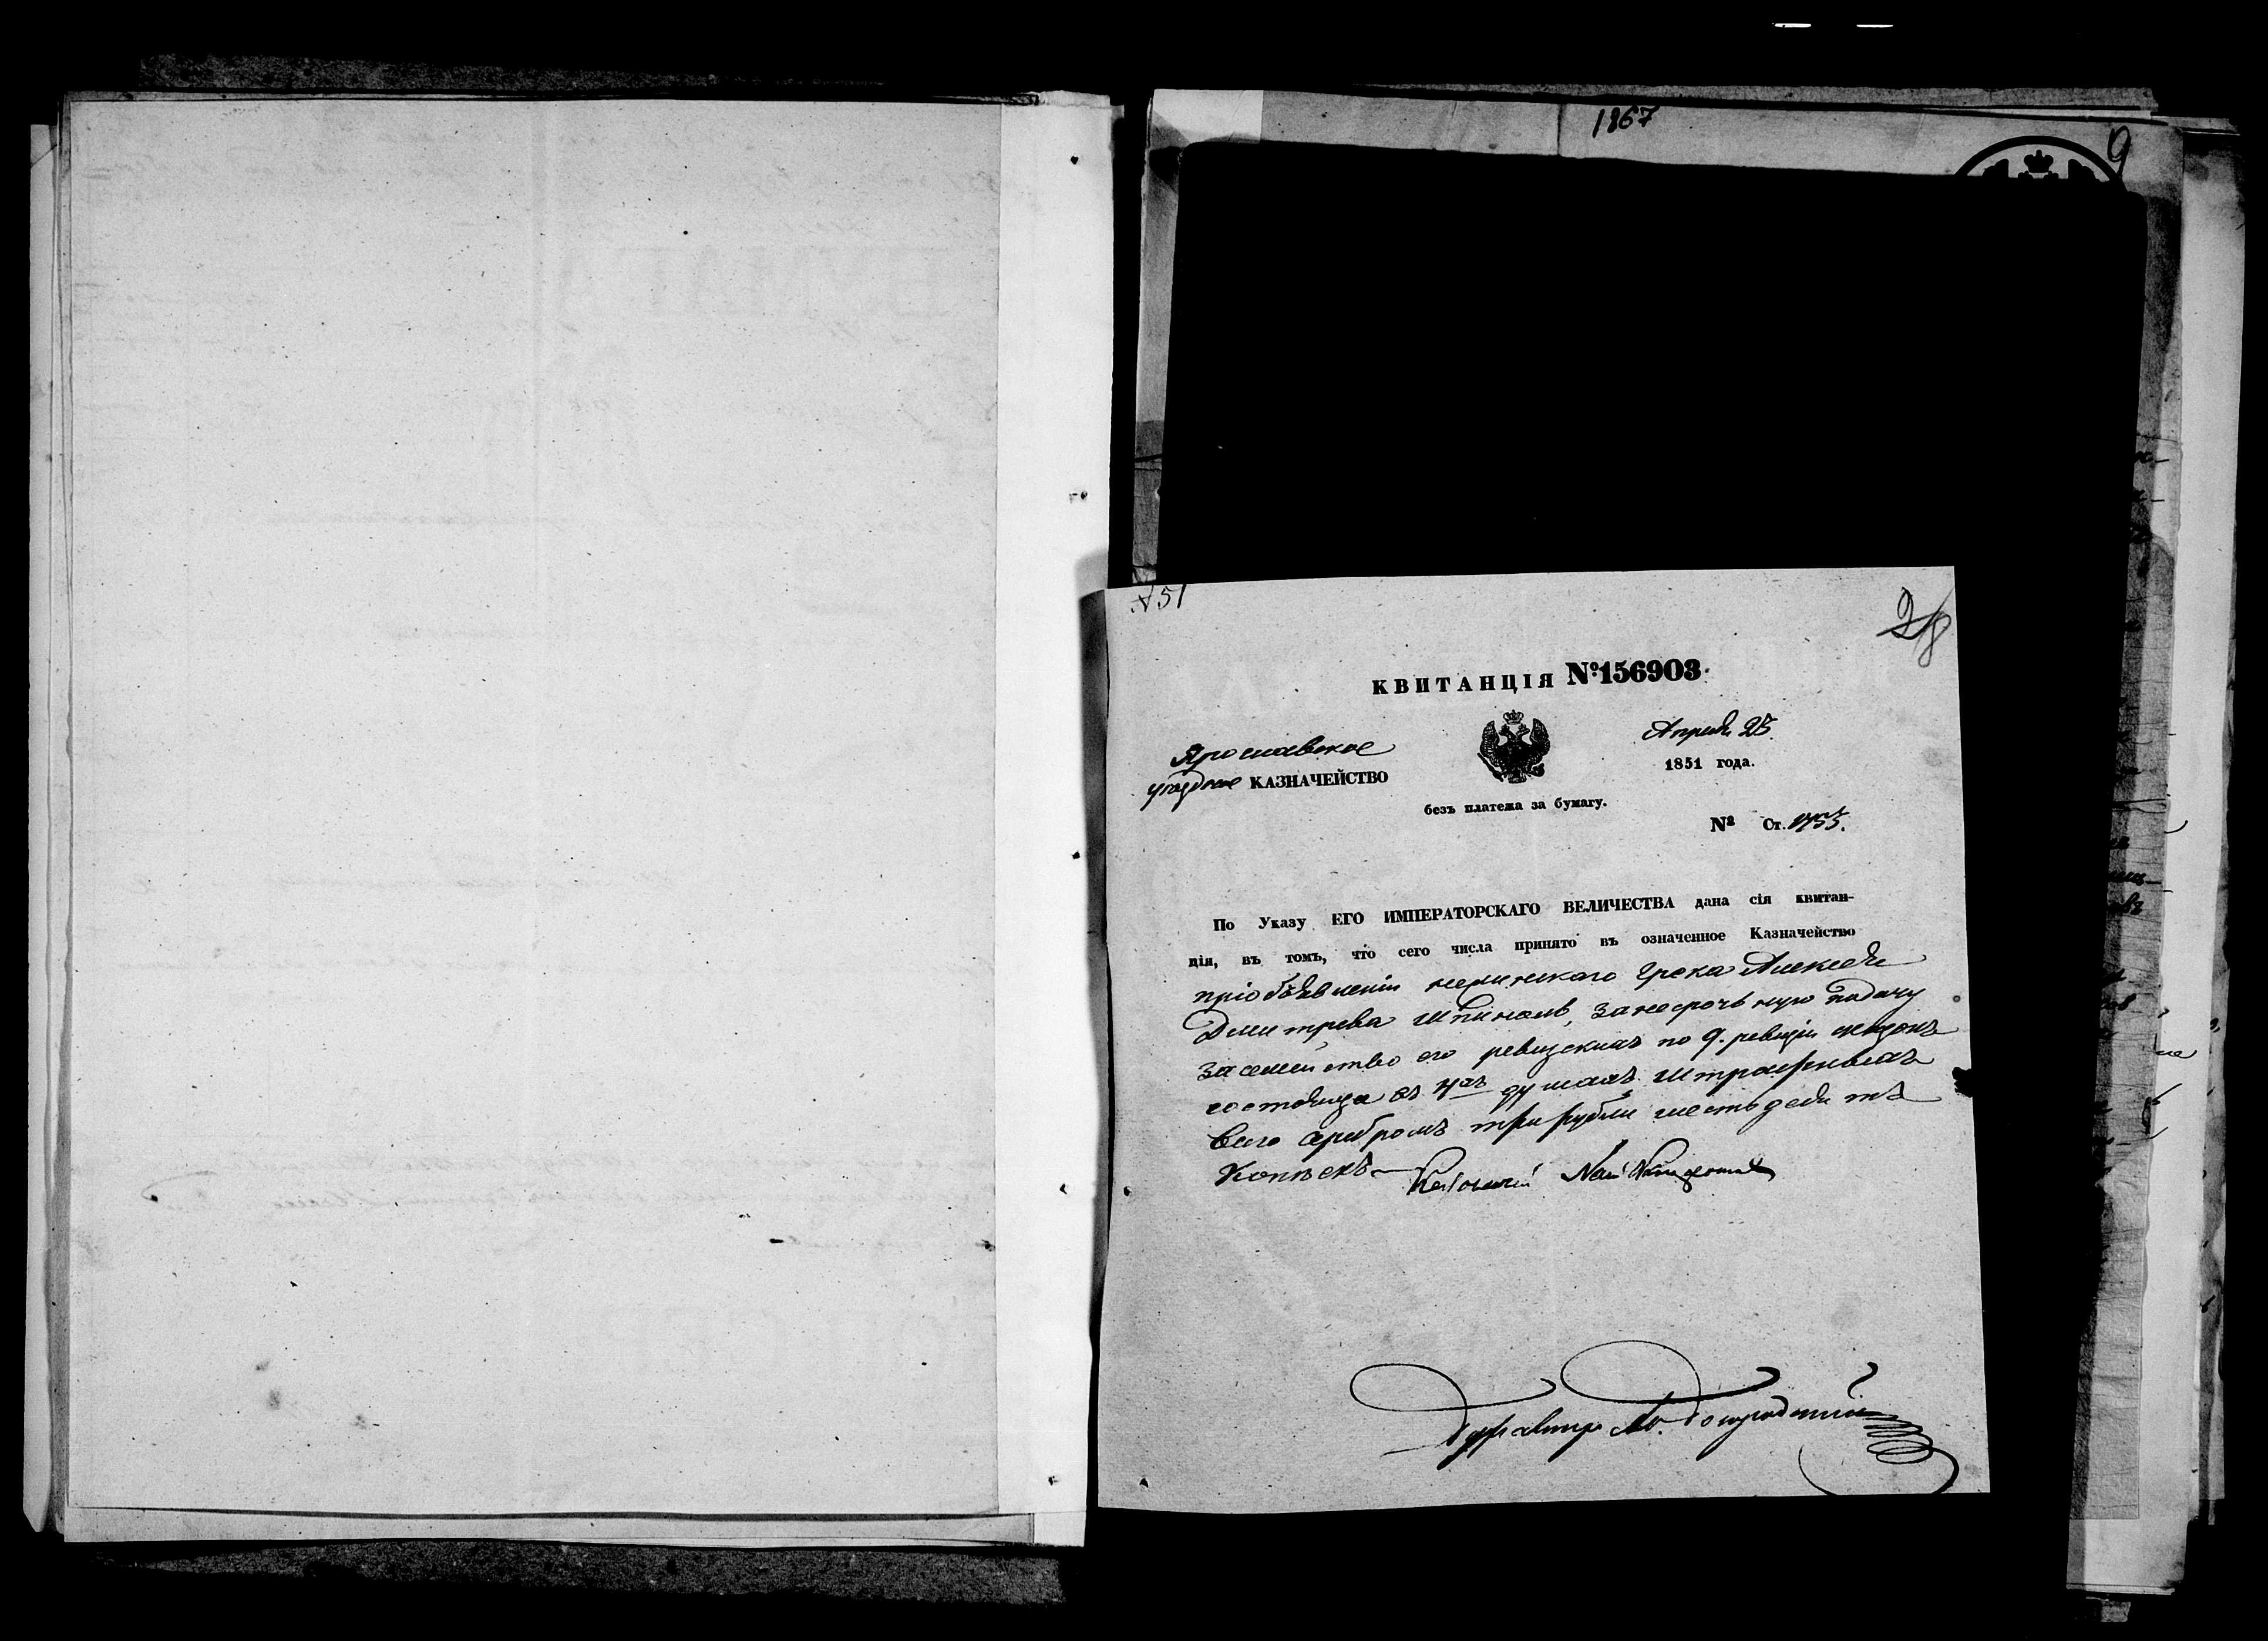 1867
9
№ 51
КВИТАНЦІЯ №156903.
Апрѣля 25
Ярославское
уѣздное КАЗНАЧЕЙСТВО
1851 года.
безъ платежа за бумагу.
№ Ст. 1753.
По Указу ЕГО ИМПЕРАТОРСКАГО ВЕЛИЧЕСТВА дана сія квитан-
ція, въ томъ, что сего числа принято въ означенное Казначейство
при объявленіи нежинскаго Грека Алексѣя
Дмитрева за несрочную подачу
за семейство его ревизскихъ по 9. ревизіи сказокъ
состоящее въ 4хъ душахъ штрафныхъ
всего серебромъ три рубли шестьдесятъ
Копѣекъ.—